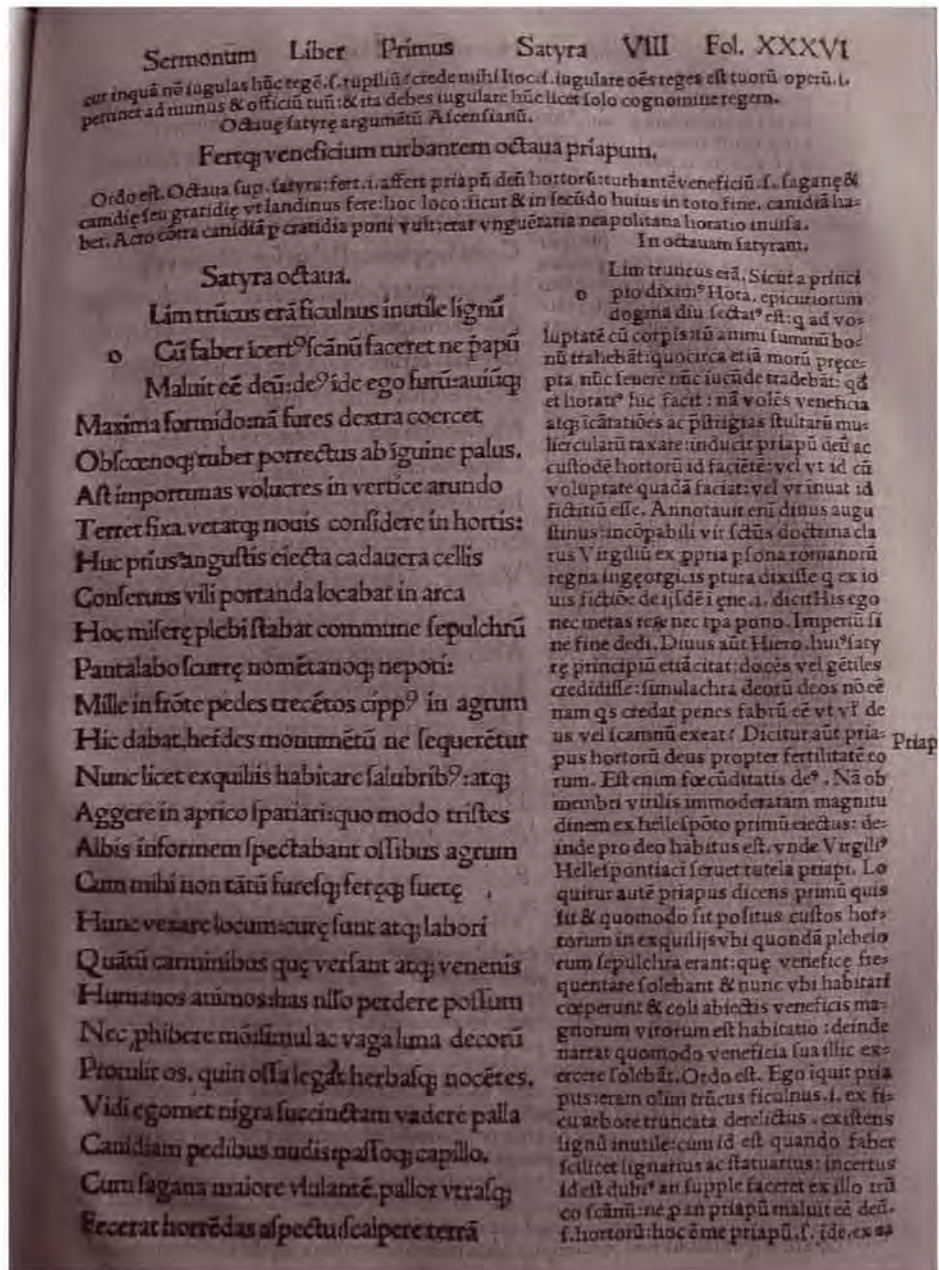 Sermonum Liber Primus Satyra VIII Fol. XXXVI
cur inquā nō iugulas hūc regē.ſ.rupiliū? crede mihi hoc.ſ.iugulare oēs reges eſt tuorū operū.i.
pertinet ad munus & officiū tuū: & ita debes iugulare hūc licet ſolo cognomine regem.
Octauę ſatyrę argumētū Aſcenſianū.
Fertqꝫ veneficium turbantem octaua priapum.
Ordo eſt. Octaua ſup. ſatyra: fert.i. affert priapū deū hortorū: turbantē veneficiū.ſ. ſaganę &
canidię ſeu gratidię vt landinus fere: hoc loco: ſicut & in ſecūdo huius in toto fine. canidiā ha⸗
bet. Acro cōtra canidiā ꝓ cratidia poni vult: erat vnguētaria neapolitana horatio inuiſa.
In octauam ſatyram.
Satyra octaua.
Lim trūcus erā ficulnus inutile lignū
o Cū faber īcertꝰ ſcānū faceret ne p̄apū
Maluit eē deū: deꝰ īde ego furū: auiūqꝫ
Maxima formido: nā fures dextra coercet
Obſcœnoqꝫ ruber porrectus ab īguine palus.
Aſt importunas volucres in vertice arundo
Terret fixa. vetatqꝫ nouis conſidere in hortis:
Huc prius anguſtis eiecta cadauera cellis
Conſeruus vili portanda locabat in arca
Hoc miſerę plebi ſtabat commune ſepulchrū
Pantalabo ſcurrę nomētanoqꝫ nepoti:
Mille in frōte pedes trecētos cippꝰ in agrum
Hic dabat, heīdes monumētū ne ſequerētur
Nunc licet exquiliis habitare ſalubribꝰ: atqꝫ
Aggere in aprico ſpatiari: quo modo triſtes
Albis informem ſpectabant oſſibus agrum
Cum mihi non tātū fureſqꝫ feręqꝫ fuetę
Hunc vexare locum: curę ſunt atqꝫ labori
Quātū carminibus quę verſant atqꝫ venenis
Humanos animos: has nllo perdere poſſum
Nec ꝓhibere mō: ſimul ac vaga luna decorū
Protulit os. quin oſſa legāt herbaſqꝫ nocētes.
Vidi egomet nigra ſuccinctam vadere palla
Canidiam pedibus nudis: paſſoqꝫ capillo.
Cum ſagana maiore vlulantē. pallor vtraſqꝫ
Fecerat horrēdas aſpectu: ſcalpere terrā
Lim truncus erā. Sicut a princi
o pio diximꝰ Hora. epicuriorum
dogma diu ſectatꝰ eſt: q ad vo⸗
luptatē cū corpis: tū animi ſummū bo⸗
nū trahebāt: quocirca etiā morū pręce⸗
pta nūc ſeuere nūc iucūde tradebāt: qđ
et horatꝰ hic facit: nā volēs veneficia
atqꝫ īcātatiōes ac p̄ſtrigias ſtultarū mu⸗
liercularū taxare: inducit priapū deū ac
cuſtodē hortorū id faciētē: vel vt id cū
voluptate quadā faciat: vel vt inuat id
fictitiū eſſe. Annotauit enī diuus augu
ſtinus: incōpabili vir ſctūs doctrina cla
rus Virgiliū ex ꝓpria pſona romanorū
regna in georgi.is ptura dixiſſe q ex io
uis fictiōe de ijſdē i ęne.i. dicit His ego
nec metas reꝝ nec tpa pono. Imperiū ſi
ne fine dedi. Diuus aūt Hiero. huiꝰ ſaty
rę principiū etiā citat: docēs vel gētiles
credidiſſe: ſimulachra deorū deos nō eē
nam qs credat penes fabrū eē vt vł de
us vel ſcamnū exeat? Dicitur aūt pria⸗ Priap
pus hortorū deus propter fertilitatē eo
rum. Eſt enim fœcūditatis deꝰ. Nā ob
membri virilis immoderatam magnitu
dinem ex helleſpōto primū eiectus: de⸗
inde pro deo habitus eſt. vnde Virgiliꝰ
Helleſpontiaci ſeruet tutela priapi. Lo
quitur autē priapus dicens primū quis
ſit & quomodo ſit poſitus cuſtos hor⸗
torum in exquilijs vbi quondā plebeio
rum ſepulchra erant: quę veneficę fre⸗
quentare ſolebant & nunc vbi habitari
cœperunt & coli abiectis veneficis ma⸗
gnorum virorum eſt habitatio: deinde
narrat quomodo veneficia ſua illic ex⸗
ercere ſolebāt. Ordo eſt. Ego iquit pria
pus: eram olim trūcus ficulnus.i. ex fi⸗
cu arbore truncata derelictus. exiſtens
lignū inutile: cum id eſt quando faber
ſcilicet lignarius ac ſtatuarius: incertus
id eſt dubiꝰ an ſupple faceret ex illo trū
co ſcānū: ne p an priapū maluit eē deū.
ſ. hortorū: hoc ē me priapū.ſ. īde. ex ea